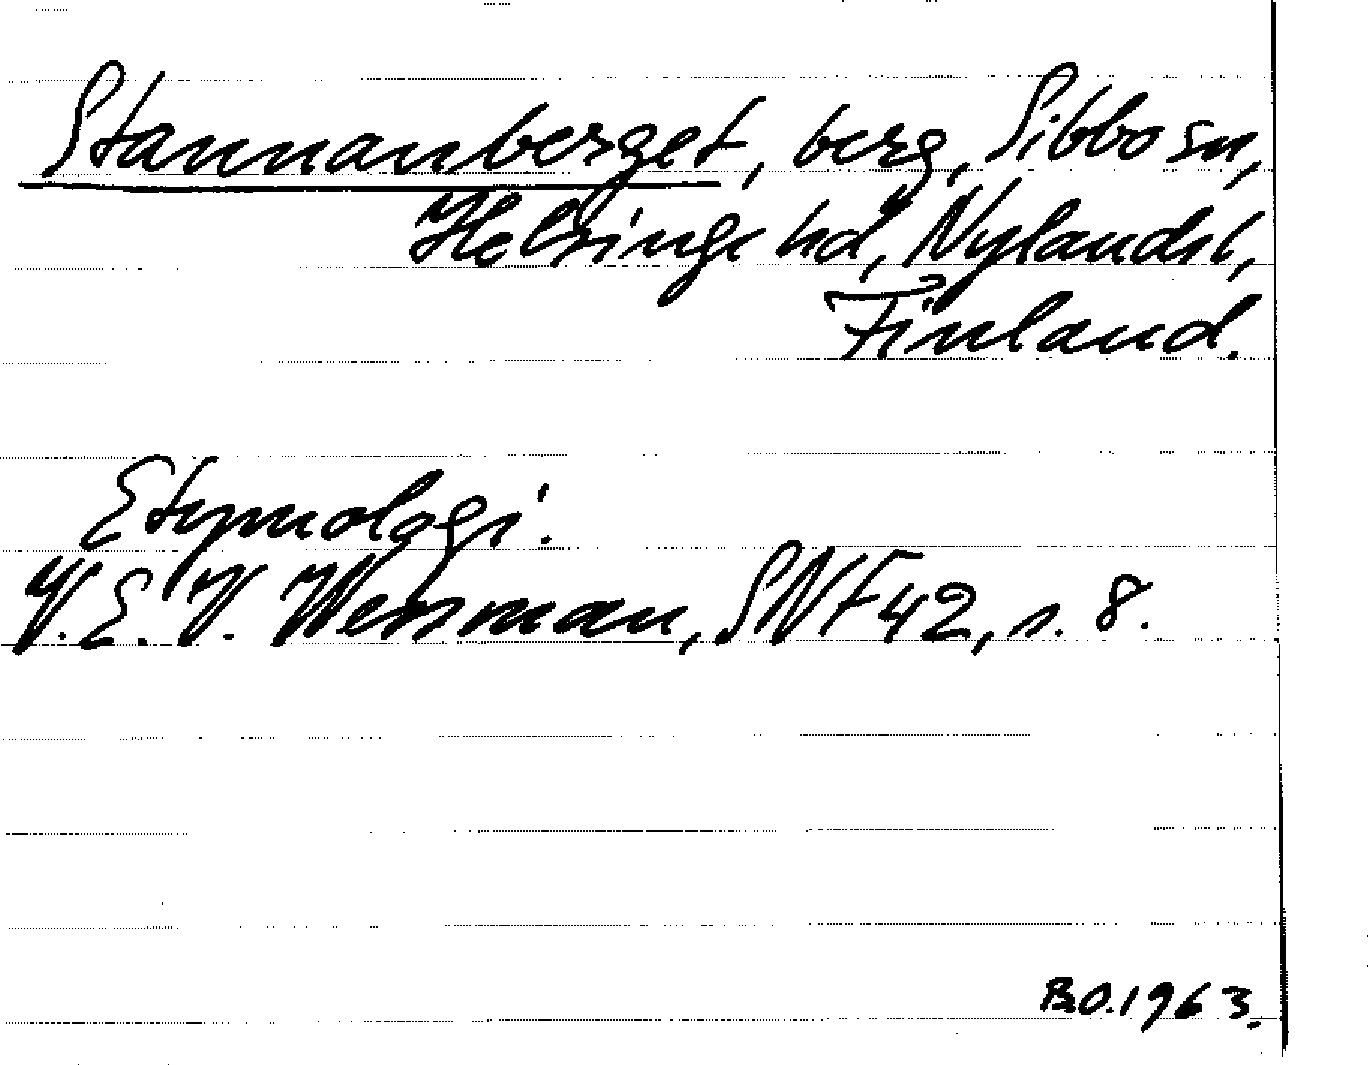 Stannanberget, berg, Sibbo sn,
Helsinge hd, Nylands l,
Finland.
Etymologi:
V. E. V. Wessman, SNF 42, s. 8.
B.O. 1963.